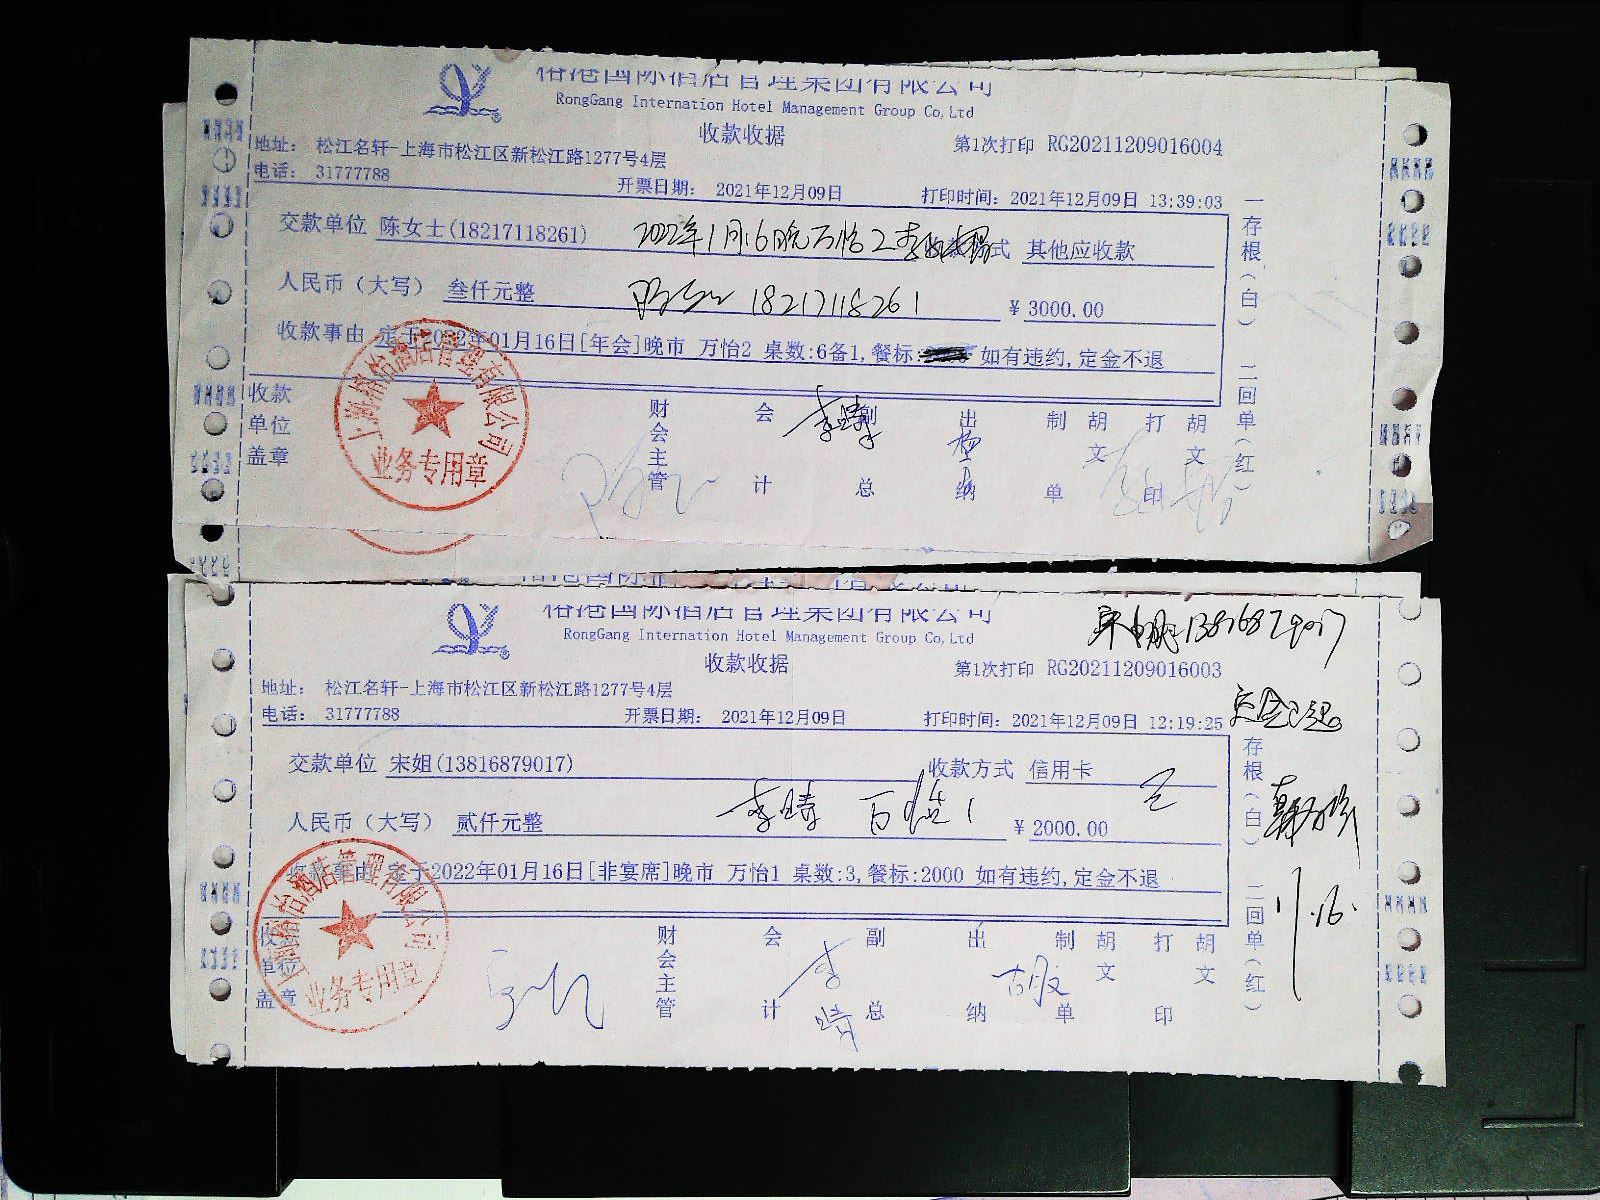 裕港国际酒店管理集团有限公司
RongGang Internation Hotel Management Group Co,Ltd
收款收据
第1次打印 RG20211209016004
地址: 松江名轩-上海市松江区新松江路1277号4层
电话: 31777788
开票日期: 2021年12月09日
打印时间: 2021年12月09日 13:39:03
交款单位 陈女士(18217118261)
2022年1月16晚万怡2
式 其他应收款
人民币(大写) 叁仟元整
18217118261
¥ 3000.00
收款事由 定于2022年01月16日[年会]晚市 万怡2 桌数:6备1,餐标: 如有违约,定金不退
一存根(白) 二回单(红)
收款单位盖章
财会主管
会计
副总
李晴
出纳
制单
胡文
打印
胡文
上海裕怡酒店管理有限公司
业务专用章
裕港国际酒店管理集团有限公司
RongGang Internation Hotel Management Group Co,Ltd
13816879017
收款收据
第1次打印 RG20211209016003
地址: 松江名轩-上海市松江区新松江路1277号4层
电话: 31777788
开票日期: 2021年12月09日
打印时间: 2021年12月09日 12:19:25
定金已退
交款单位 宋姐(13816879017)
收款方式 信用卡
李晴 万怡1
人民币(大写) 贰仟元整
¥ 2000.00
定于2022年01月16日[非宴席]晚市 万怡1 桌数:3,餐标:2000 如有违约,定金不退
存根(白) 二回单(红)
1.16.
收
单位
盖章
财会主管
会计
李晴
副总
出纳
胡文
制单
胡文
打印
胡文
业务专用章